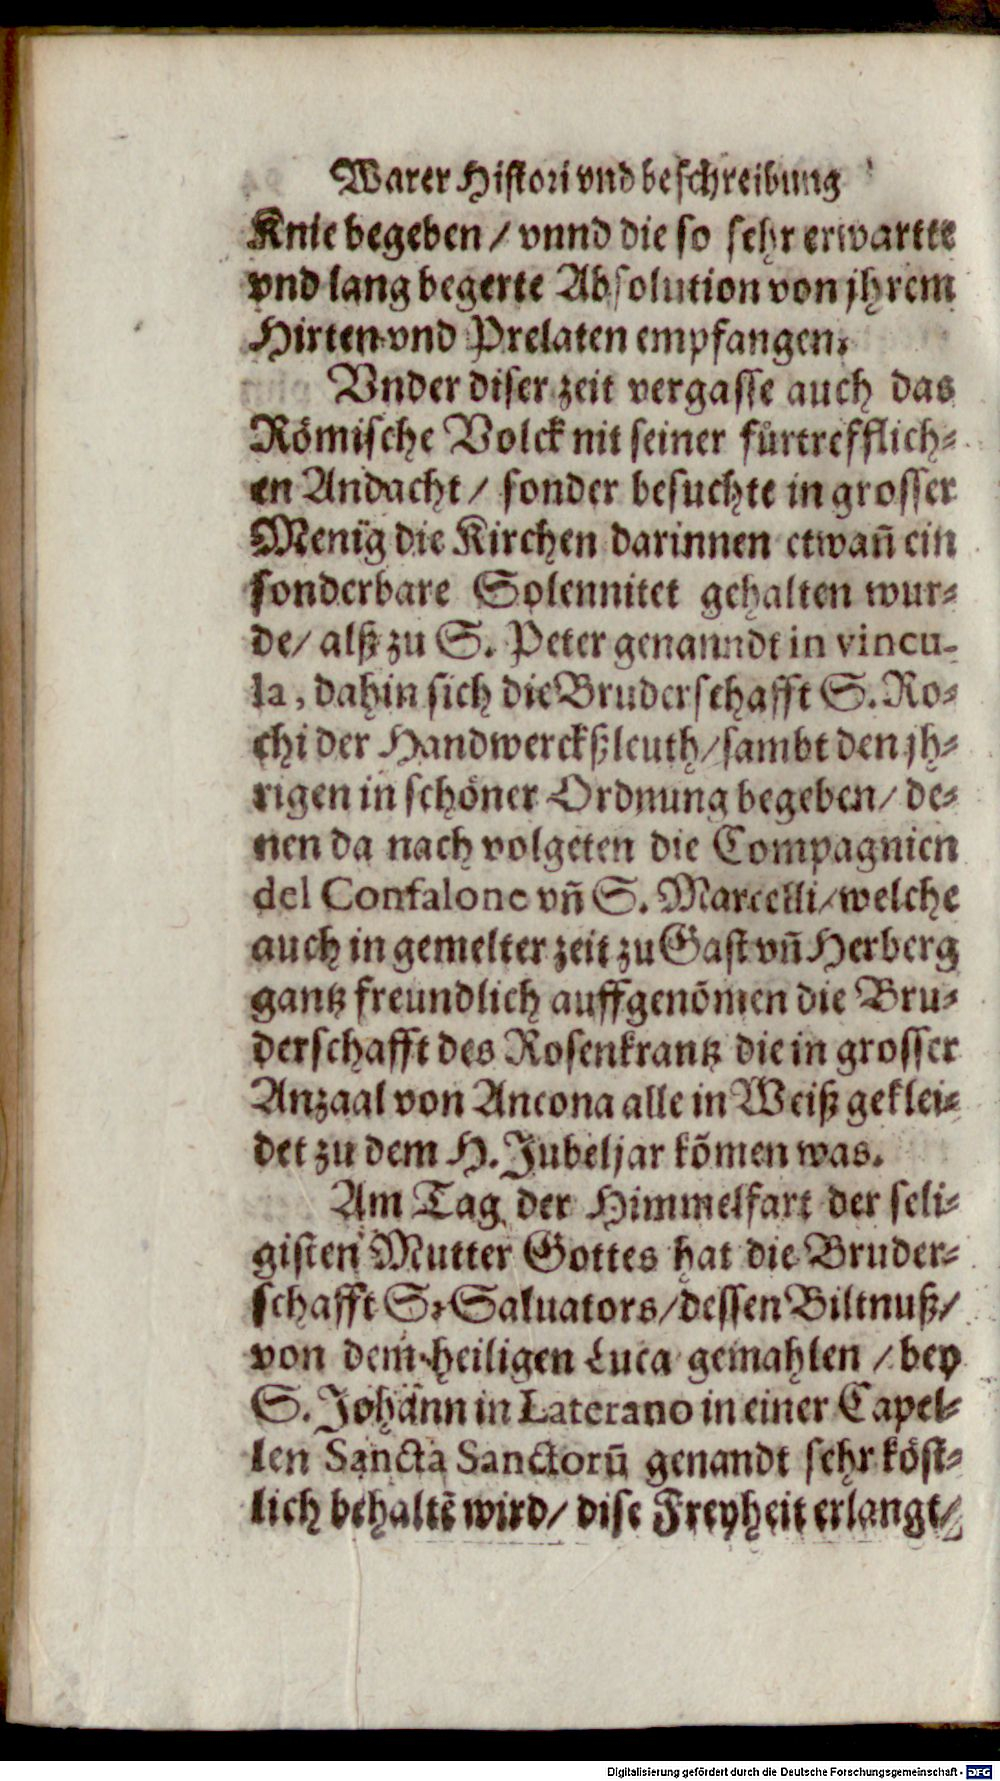 Warer Histori vnd beschreibung
Knie begeben / vnnd die so sehr erwartte
vnd lang begerte Absolution von jhrem
Hirten vnd Prelaten empfangen.
Vnder diser zeit vergasse auch das
Römische Volck nit seiner fürtrefflich-
en Andacht / sonder besuchte in grosser
Menig die Kirchen darinnen etwañ ein
sonderbare Solennitet gehalten wur-
de / alß zu S. Peter genanndt in vincu-
la, dahin sich die Bruderschafft S. Ro-
chi der Handwerckßleuth / sambt den jh-
rigen in schöner Ordnung begeben / de-
nen da nach volgeten die Compagnien
del Confalone vñ S. Marcelli / welche
auch in gemelter zeit zu Gast vñ Herberg
gantz freundlich auffgenõmen die Bru-
derschafft des Rosenkrantz die in grosser
Anzaal von Ancona alle in Weiß geklei-
det zu dem H. Jubeljar kõmen was.
Am Tag der Himmelfart der seli-
gisten Mutter Gottes hat die Bruder-
schafft S. Saluators / dessen Biltnuß /
von dem heiligen Luca gemahlen / bey
S. Johann in Laterano in einer Capel-
len Sancta Sanctorũ genandt sehr köst-
lich behaltẽ wird / dise Freyheit erlangt /
Digitalisierung gefördert durch die Deutsche Forschungsgemeinschaft - DFG